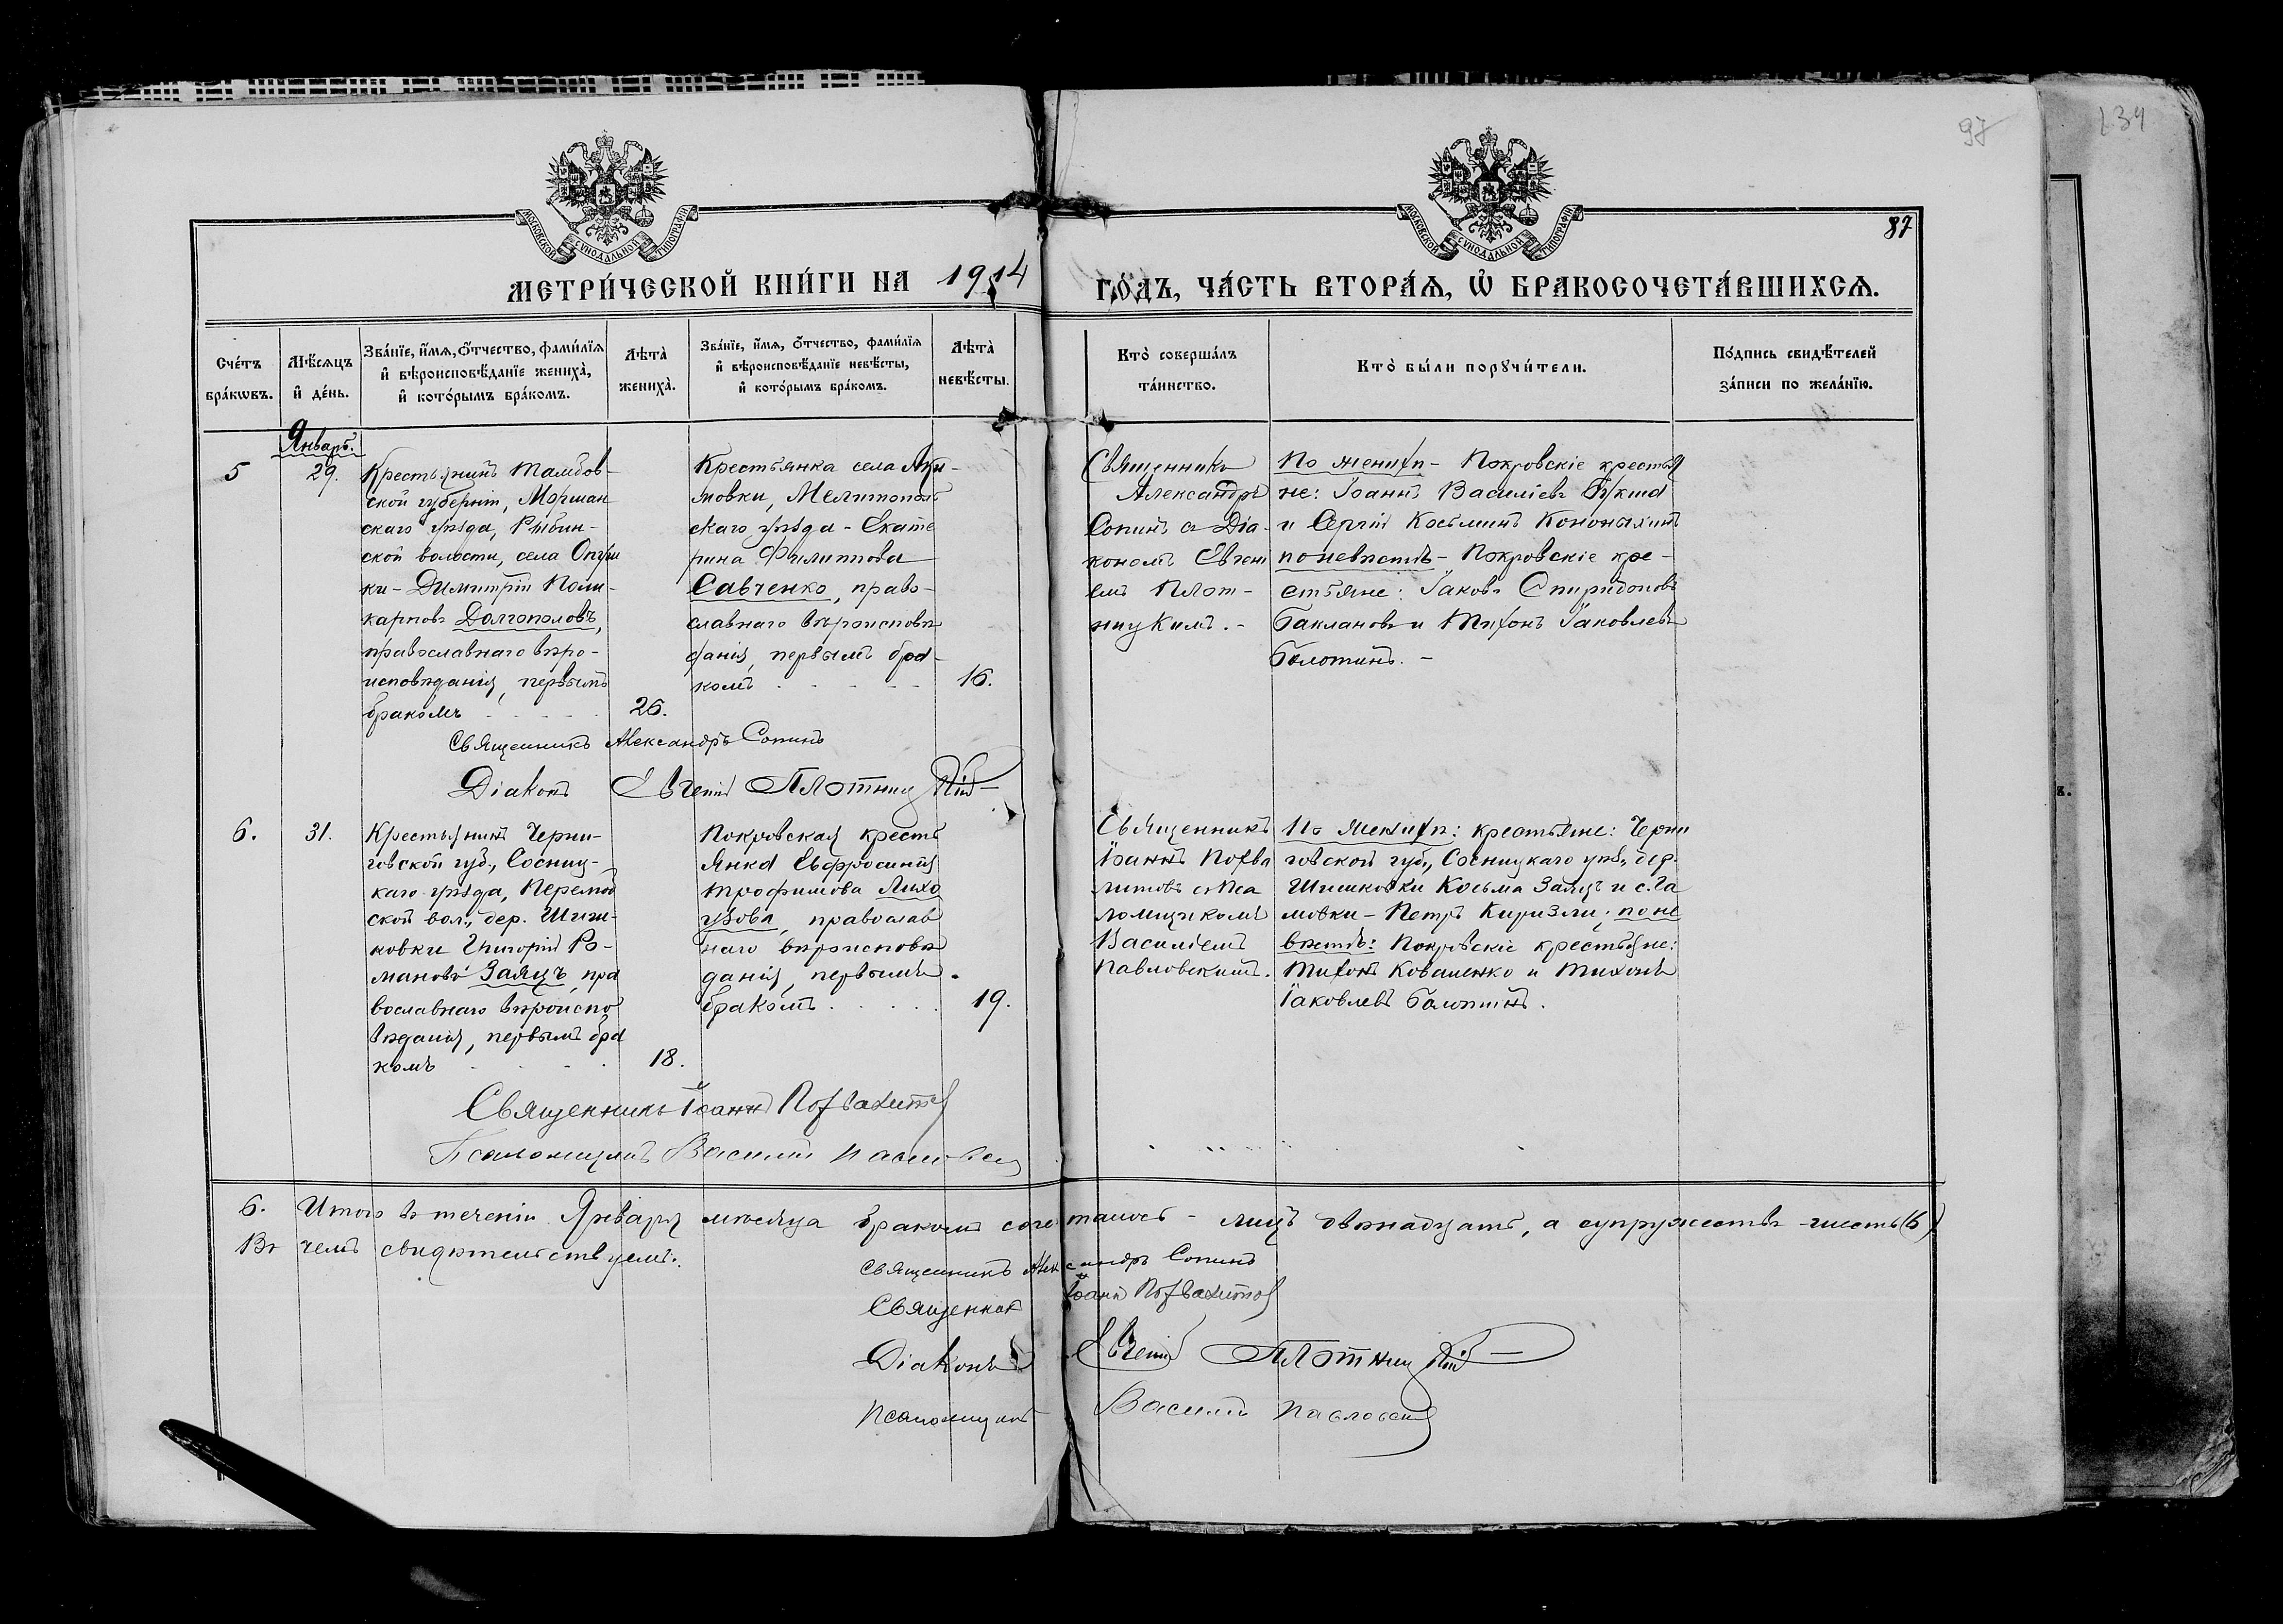 97
134
МОСКОВСКОЙ СУНОДАЛЬНОЙ ТИПОГРАФІИ
МОСКОВСКОЙ СУНОДАЛЬНОЙ ТИПОГРАФІИ
87
МЕТРИ́ЧЕСКОЙ КНИ́ГИ НА 1914 ГО́ДЪ, ЧА́СТЬ ВТОРА́Я, Ѡ БРАКОСОЧЕТА́ВШИХСЯ.
Сче́тъ
бра́кѡвъ.
Мѣ́сяцъ
и҆ де́нь.
Зва́нїе, и҆́мя, ѻ҆́тчество, фами́лїя
и҆ вѣроисповѣ́данїе жениха̀,
и҆ кото́рымъ бра́комъ.
Лѣта̀
жениха̀.
Зва́нїе, и҆́мя, ѻ҆́тчество, фами́лїя
и҆ вѣроисповѣ́данїе невѣ́сты,
и҆ кото́рымъ бра́комъ.
Лѣта̀
невѣ́сты.
Кто̀ соверша́лъ
та́инство.
Кто̀ бы́ли порꙋчи́тели.
По́дпись свидѣ́телей
за́писи по жела́нїю.
Январь.
5
29.
Крестьянинъ Тамбов-
ской губерніи, Моршан
скаго уѣзда, Рыбин-
ской волости, села
ки - Димитрій Поли-
карповъ Долгополовъ,
православнаго вѣро-
исповѣданія, первымъ
бракомъ
26.
Крестьянка села Аки-
мовки, Мелитополь
скаго уѣзда - Екате
рина Филиппова
Савченко, право-
славнаго вѣроисповѣ
данія, первымъ бра-
комъ
16.
Священникъ
Александръ
Сопинъ съ Діа-
кономъ Евгені
емъ Плот-
ницкимъ. -
По женихѣ - Покровскіе крестья
не: Іоаннъ Василіевъ Букша
и Сергій Косьминъ
по невѣстѣ - Покровскіе кре-
стьяне: Іаковъ Спиридоновъ
Баклановъ и Тихонъ Іаковлевъ
Болотинъ. -
Священникъ Александръ Сопинъ
Діаконъ Евгеній Плотницкій
6.
31.
Крестьянинъ Черни-
говской губ., Сосниц-
каго уѣзда,
ской вол., дер. Шиш-
ковки Григорій Ро-
мановъ Заяцъ, пра
вославнаго вѣроиспо
вѣданія, первымъ бра
комъ
18.
Покровская кресть
янка Евфросинія
Трофимова Лихо
узова, православ
наго вѣроисповѣ
данія, первымъ
бракомъ
19.
Священникъ
Іоаннъ Похва
литовъ съ Пса
ломщикомъ
Василіемъ
Павловскимъ.
По женихѣ: крестьяне: Черни
говской губ., Сосницкаго уѣз., дер.
Шишковки Косьма Заяцъ и с.
мовки - Петръ по не
вѣстѣ: Покровскіе крестьяне:
Тихонъ Коваленко и Тихонъ
Іаковлевъ Болотинъ.
Священникъ Іоаннъ Похвалитовъ
Псаломщикъ Василій Павловскій
6. Итого въ теченіи Января мѣсяца бракомъ сочеталось - лицъ двѣнадцать, а супружествъ - шесть (6)
Въ чемъ свидѣтельствуемъ:
Священникъ Александръ Сопинъ
Священникъ Іоаннъ Похвалитовъ
Діаконъ Евгеній Плотницкій
Псаломщикъ Василій Павловскій